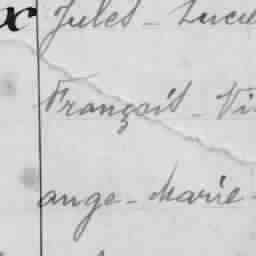 Jules - Lucie
François - Vi
ange - Marie -